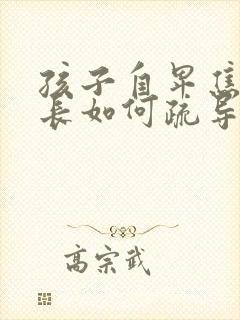 孩子自卑焦
长如何疏导
高宗武